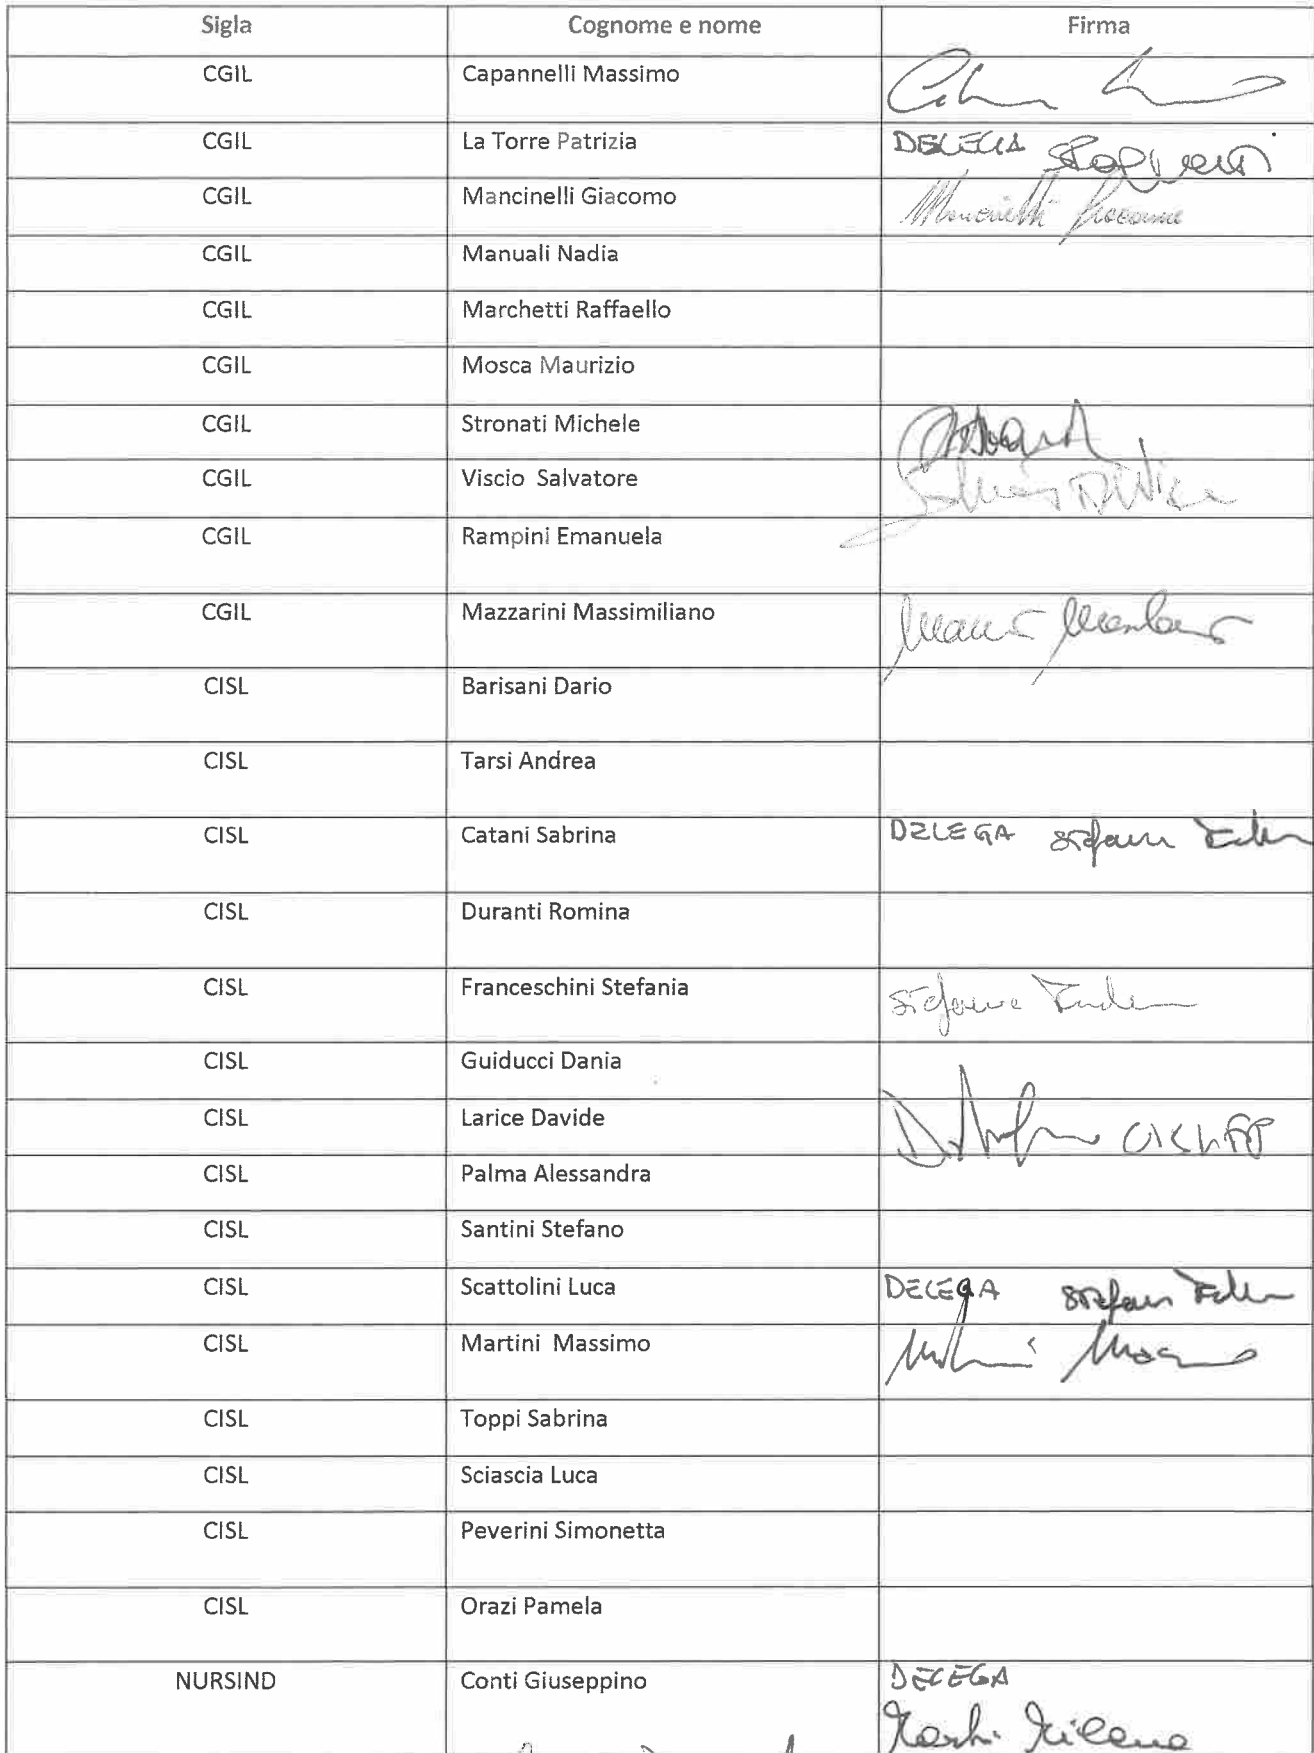 Sigla Cognome e nome Firma
CGIL Capannelli Massimo
CGIL La Torre Patrizia DELEGA
CGIL Mancinelli Giacomo Mancinelli Giacomo
CGIL Manuali Nadia
CGIL Marchetti Raffaello
CGIL Mosca Maurizio
CGIL Stronati Michele
CGIL Viscio Salvatore
CGIL Rampini Emanuela
CGIL Mazzarini Massimiliano
CISL Barisani Dario
CISL Tarsi Andrea
CISL Catani Sabrina DELEGA
CISL Duranti Romina
CISL Franceschini Stefania
CISL Guiducci Dania
CISL Larice Davide
CISL Palma Alessandra
CISL Santini Stefano
CISL Scattolini Luca DELEGA
CISL Martini Massimo
CISL Toppi Sabrina
CISL Sciascia Luca
CISL Peverini Simonetta
CISL Orazi Pamela
NURSIND Conti Giuseppino DELEGA